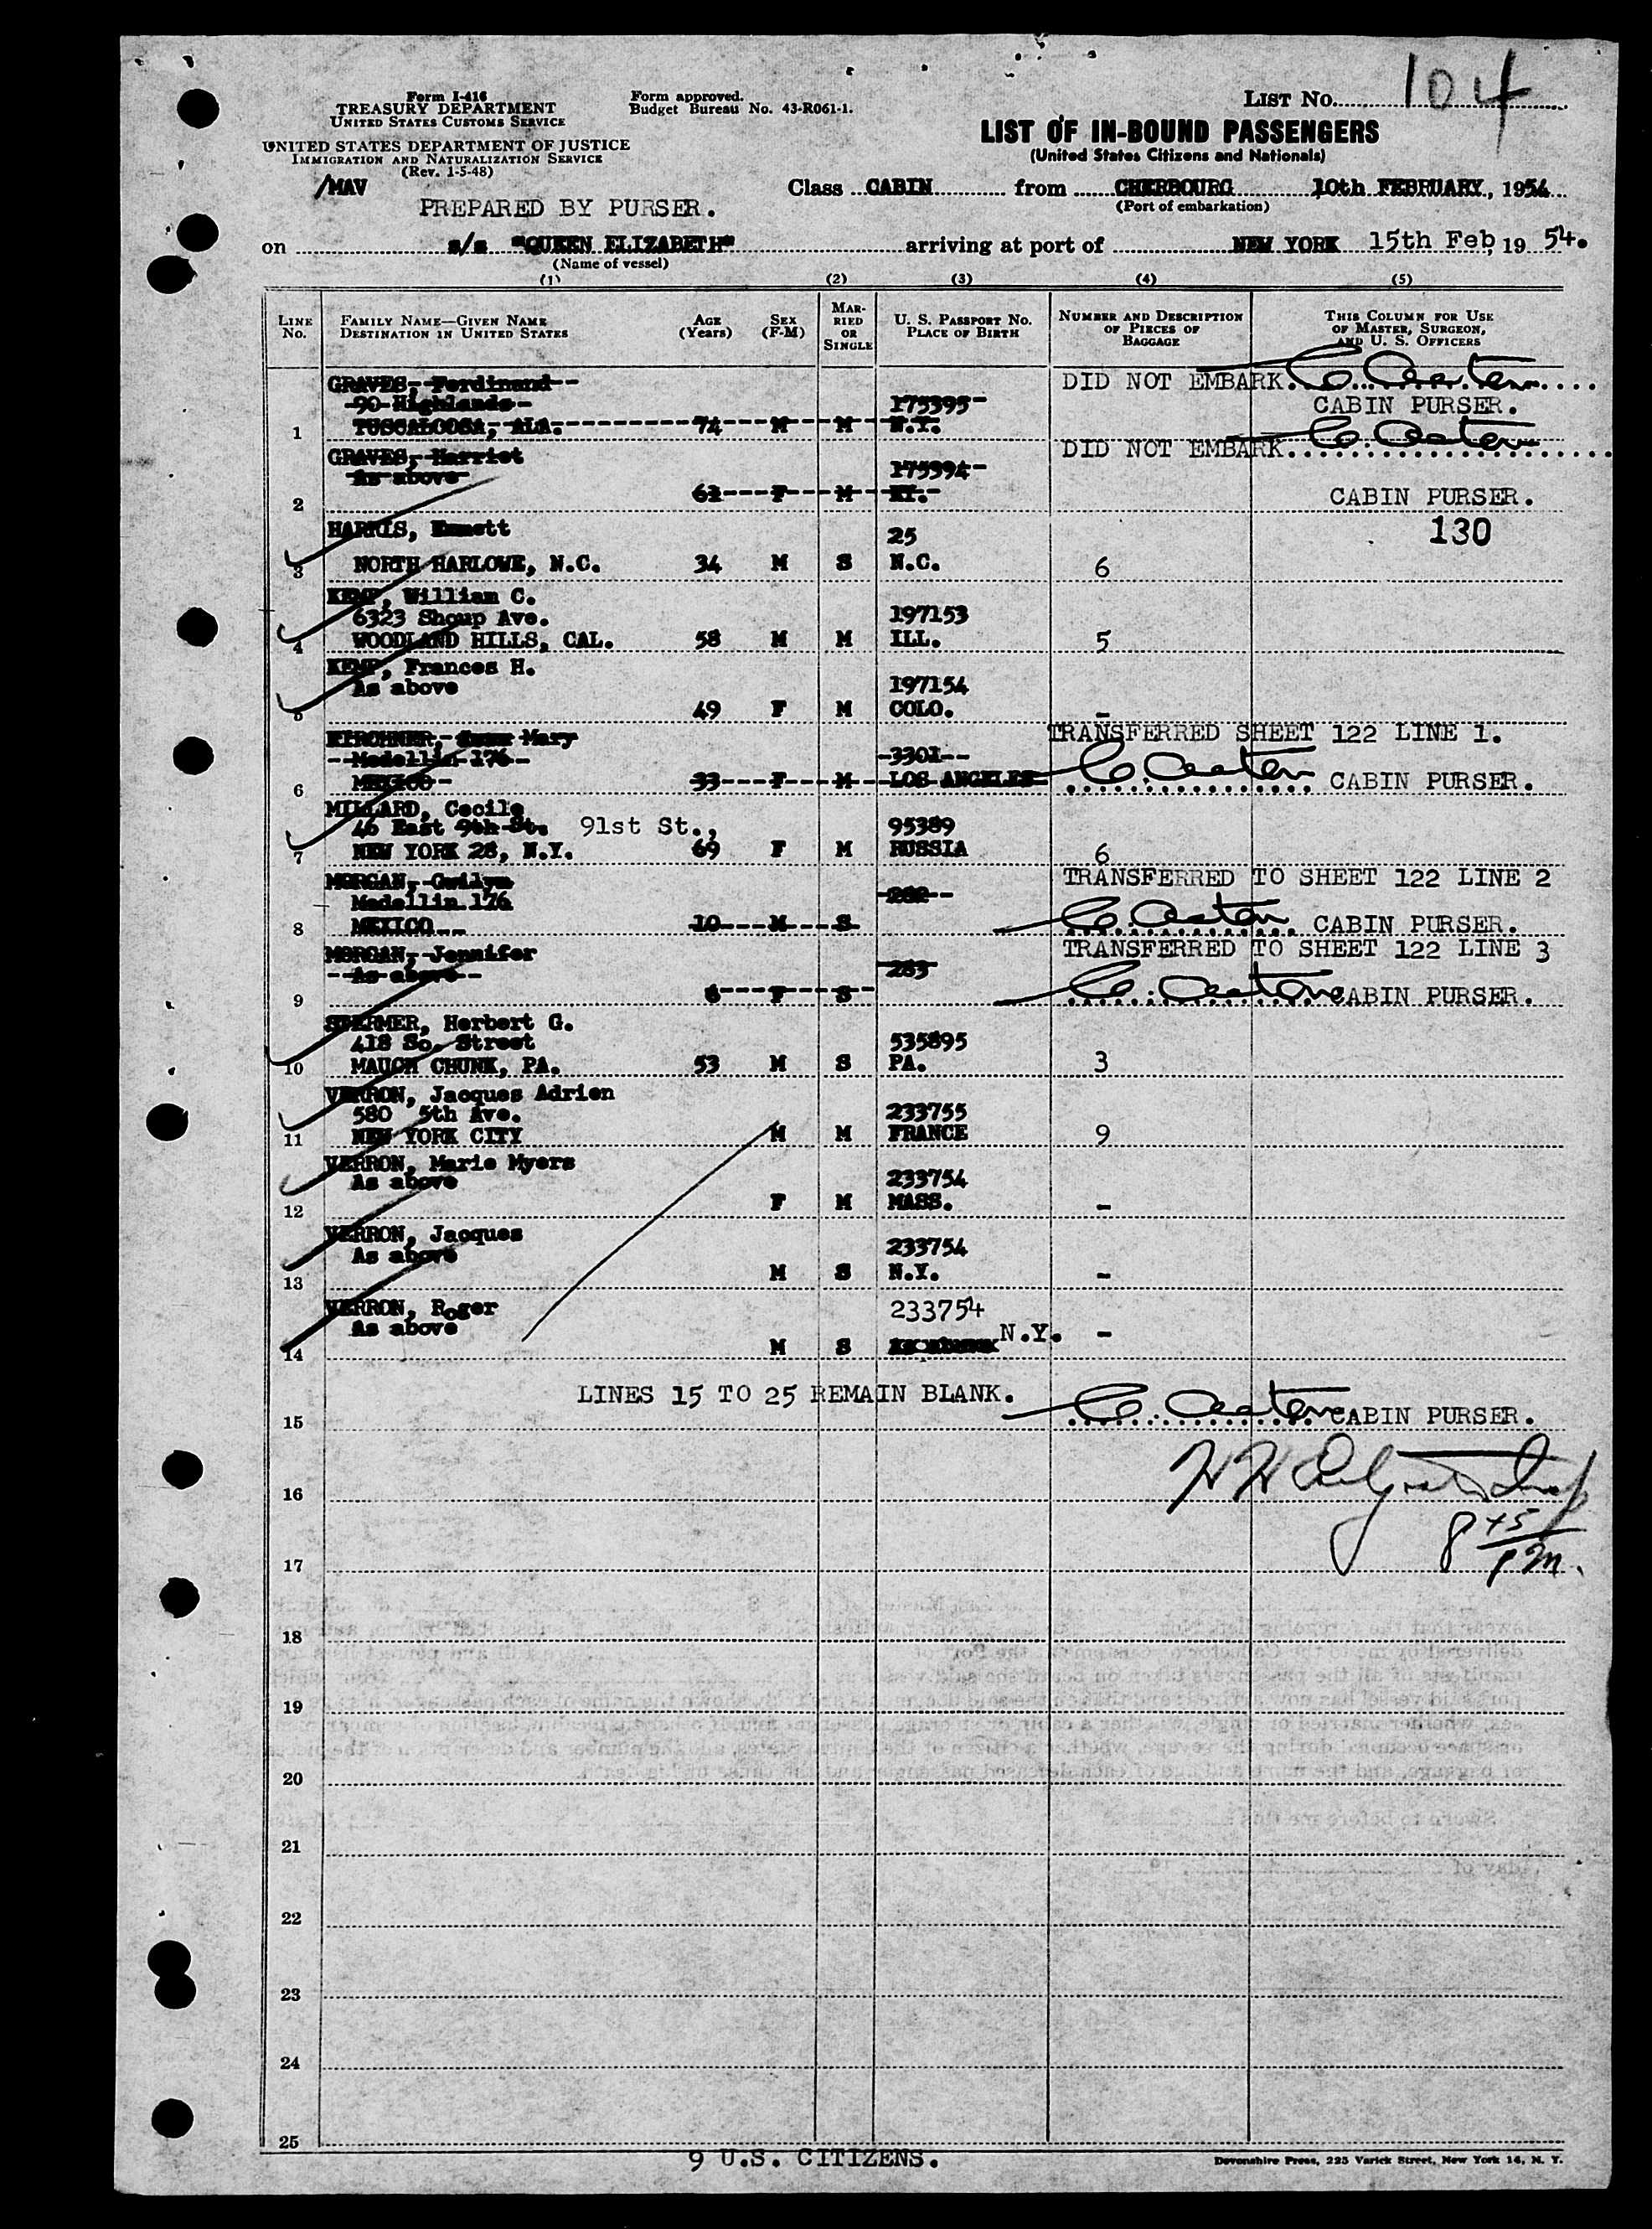 Form I-416
TREASURY DEPARTMENT
UNITED STATES CUSTOMS SERVICE
UNITED STATES DEPARTMENT OF JUSTICE
IMMIGRATION AND NATURALIZATION SERVICE
(Rev. 1-5-48)
Form approved.
Budget Bureau No. 43-R061-1.
LIST No. 104
LIST OF IN-BOUND PASSENGERS
(United States Citizens and Nationals)
/MAV
PREPARED BY PURSER.
Class CABIN from CHERBOURG 10th FEBRUARY, 1954
(Port of embarkation)
on s/s "QUEEN ELIZABETH" arriving at port of NEW YORK 15th Feb, 19 54.
(Name of vessel)
(1) (2) (3) (4) (5)
LINE No. FAMILY NAME—GIVEN NAME DESTINATION IN UNITED STATES AGE (Years) SEX (F-M) MARRIED OR SINGLE U. S. PASSPORT NO. PLACE OF BIRTH NUMBER AND DESCRIPTION OF PIECES OF BAGGAGE THIS COLUMN FOR USE OF MASTER, SURGEON, AND U. S. OFFICERS
GRAVES, Ferdinand DID NOT EMBARK.
90 Highlands 175395 CABIN PURSER.
1 TUSCALOOSA, ALA. 74 M M N.Y.
GRAVES, Harriet DID NOT EMBARK.
As above 175394
2 62 F M KY. CABIN PURSER.
HARRIS, Emmett 25 130
3 NORTH HARLOWE, N.C. 34 M S N.C. 6
KEMP, William C.
6323 Shoup Ave. 197153
4 WOODLAND HILLS, CAL. 58 M M ILL. 5
KEMP, Frances H.
As above 197154
5 49 F M COLO. -
KIRCHNER, Mary TRANSFERRED SHEET 122 LINE 1.
Medellin 176 3301
6 MEXICO 33 F M LOS ANGELES CABIN PURSER.
MILLARD, Cecile
46 East 9th St. 91st St., 95389
7 NEW YORK 28, N.Y. 69 F M RUSSIA 6
MORGAN, Gwilym TRANSFERRED TO SHEET 122 LINE 2
Medellin 176 282
8 MEXICO 10 M S CABIN PURSER.
MORGAN, Jennifer TRANSFERRED TO SHEET 122 LINE 3
As above 283
9 6 F S CABIN PURSER.
STERMER, Herbert G.
418 So. Street 535895
10 MAUCH CHUNK, PA. 53 M S PA. 3
VERRON, Jacques Adrien
580 5th Ave. 233755
11 NEW YORK CITY M M FRANCE 9
VERRON, Marie Myers
As above 233754
12 F M MASS. -
VERRON, Jacques
As above 233754
13 M S N.Y. -
VERRON, Roger 233754
As above N.Y. -
14 M S
LINES 15 TO 25 REMAIN BLANK.
15 CABIN PURSER.
16
8 45/pm.
17
18
19
20
21
22
23
24
25
9 U.S. CITIZENS.
Devonshire Press, 225 Varick Street, New York 14, N. Y.